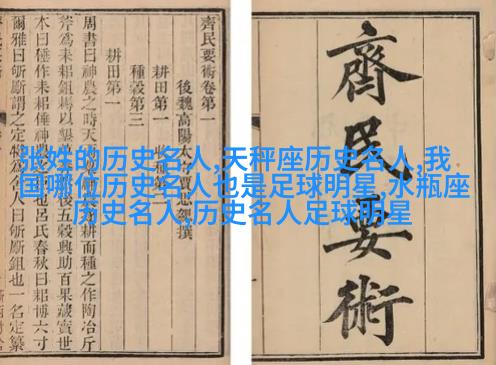 齊民要術卷第一
後魏高陽太守賈思勰撰
耕田第一 收種第二
種穀第三
耕田第一
周書曰神農之時天雨耕而種之作陶冶斤
斧為耒耜鋤耨以墾後五穀興助百果藏實世
本曰倕作耒耜倕神農之臣也呂氏春秋曰耜博六寸
爾雅曰斪斸謂之定犍為舍人曰斪斸鋤也一名定纂
齊民要術
张姓的历史名人,天秤座历史名人,我
国哪位历史名人也是足球明星,水瓶座
历史名人,历史名人足球明星